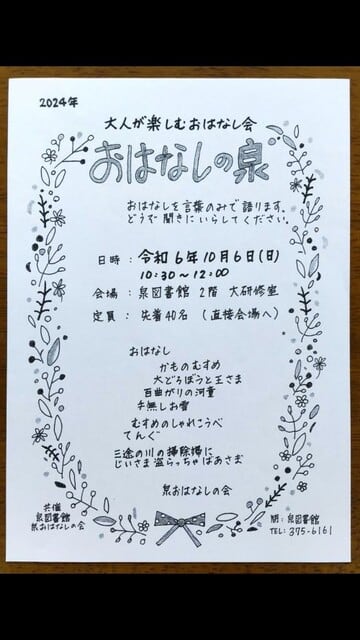 2024年
大人が楽しむおはなし会
おはなしの泉
おはなしを言葉のみで語ります。
どうぞ聞きにいらしてください。
日時：令和6年10月6日(日)
10:30～12:00
会場：泉図書館 2階 大研修室
定員：先着40名 (直接会場へ)
おはなし
かものむすめ
大どろぼうと王さま
百曲がりの河童
手無しお雪
むすめのしゃれこうべ
てんぐ
三途の川の掃除婦に
じいさま盗らっちゃばあさま
泉おはなしの会
共催
泉図書館
泉おはなしの会
問：泉図書館
TEL：375-6161